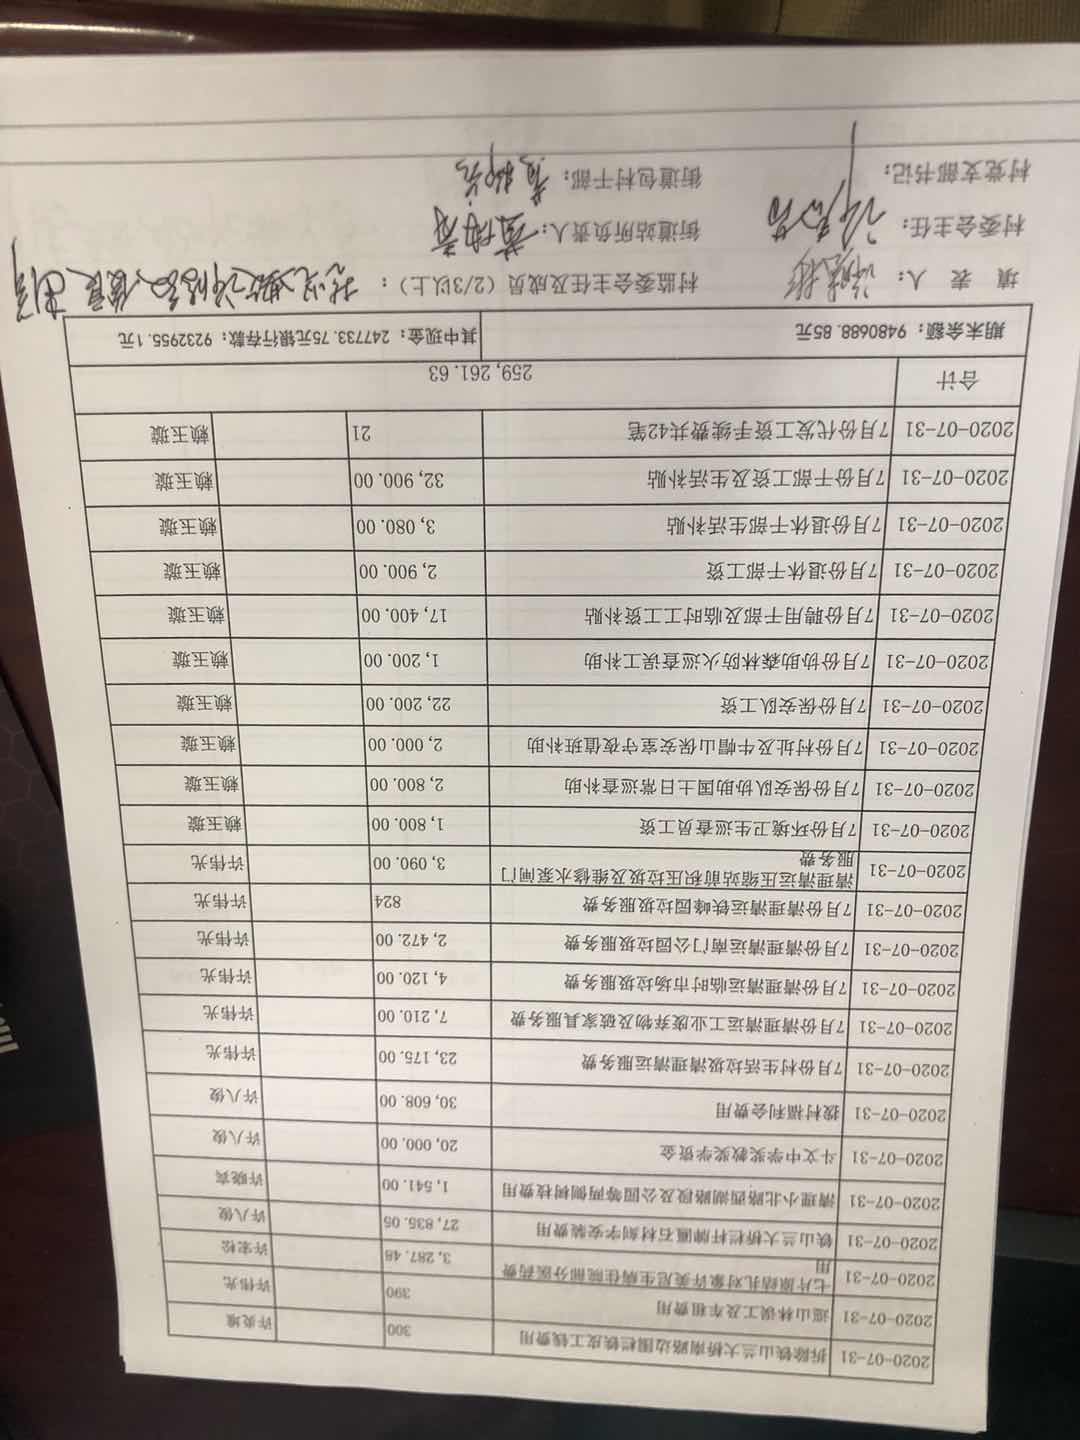 2020-07-31 拆除铁山兰大桥南路边围栏铁皮工钱费用 300
2020-07-31 巡山林误工及车租费用 390 许伟光
2020-07-31 七片原结扎对象许美尼生病住院部分医药费用 3,287.48 许宏松
2020-07-31 铁山兰大桥栏杆牌匾石材刻字安装费用 27,835.05 许八俊
2020-07-31 清理小北路西湖路段及公园等两侧树枝费用 1,541.00 许晓宾
2020-07-31 斗文中学奖教奖学资金 20,000.00 许八俊
2020-07-31 拨村福利会费用 30,608.00 许八俊
2020-07-31 7月份村生活垃圾清理清运服务费 23,175.00 许伟光
2020-07-31 7月份清理清运工业废弃物及破家具服务费 7,210.00 许伟光
2020-07-31 7月份清理清运临时市场垃圾服务费 4,120.00 许伟光
2020-07-31 7月份清理清运南门公园垃圾服务费 2,472.00 许伟光
2020-07-31 7月份清理清运铁峰园垃圾服务费 824 许伟光
2020-07-31 清理清运压缩站前积压垃圾及维修水泵闸门服务费 3,090.00 许伟光
2020-07-31 7月份环境卫生巡查员工资 1,800.00 赖玉璇
2020-07-31 7月份保安队协助国土日常巡查补助 2,800.00 赖玉璇
2020-07-31 7月份村址及牛帽山保安室守夜值班补助 2,000.00 赖玉璇
2020-07-31 7月份保安队工资 22,200.00 赖玉璇
2020-07-31 7月份协助森林防火巡查误工补助 1,200.00 赖玉璇
2020-07-31 7月份聘用干部及临时工工资补贴 17,400.00 赖玉璇
2020-07-31 7月份退休干部工资 2,900.00 赖玉璇
2020-07-31 7月份退休干部生活补贴 3,080.00 赖玉璇
2020-07-31 7月份干部工资及生活补贴 32,900.00 赖玉璇
2020-07-31 7月份代发工资手续费共42笔 21 赖玉璇
合计 259,261.63
期末余额：9480688.85元 其中现金：247733.75元银行存款：9232955.1元
填 表 人： 村监委会主任及成员（2/3以上）：
村委会主任： 街道站所负责人：
村党支部书记： 街道包村干部：